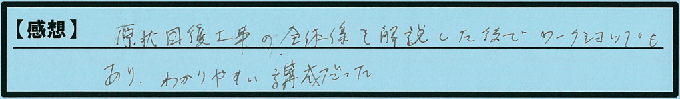 【感想】 原状回復工事の全体像を解説した後でワークショップも
あり、わかりやすい構成だった